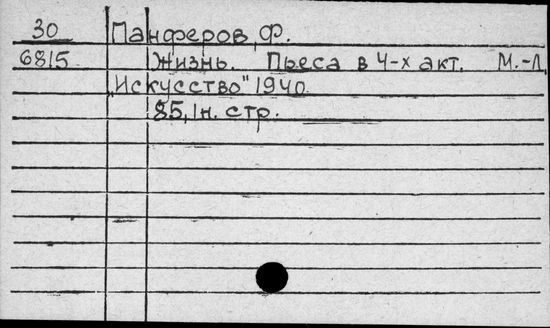 30 Панферов, Ф.
6815 Жизнь. Пьеса в 4-х акт. М.-Л
„Искусство" 1940
85, 1 н. стр.